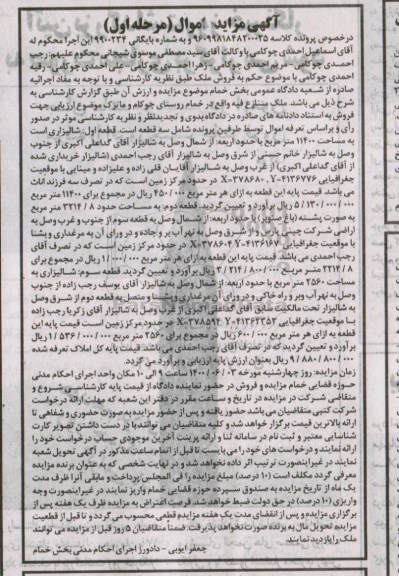 آگهی مزایده اموال (مرحله اول)
درخصوص پرونده کلاسه ۹۶۰۹۹۸۱۸۴۸۳۰۰۰۲۵ و به شماره بایگانی ۱۹۹۰۰۲۳۴ این اجرا محکوم له
آقای اسماعیل احمدی چوکامی با وکالت آقای سید مصطفی موسوی شیجانی محکوم علیهم: رجب
احمدی چوکامی - مریم احمدی چوکامی - زهرا احمدی چوکامی - علی احمدی چوکامی - رقیه
احمدی چوکامی با موضوع حکم به فروش ملک طبق نظریه کارشناسی و با توجه به مفاد اجرائیه
صادره از شعبه دادگاه عمومی بخش خمام موضوع مزایده و ارزش آن طبق گزارش کارشناسی به
شرح ذیل می باشد. ملک متنازع فیه واقع در خمام روستای چوکام و مابزک موضوع ارزیابی جهت
فروش به استناد دادنامه های صادره در دادگاه بدوی و تجدیدنظر و نظریه کارشناسی موثر در صدور
رأی و براساس تعرفه اموال توسط طرفین پرونده شامل سه قطعه است. قطعه اول: شالیزاری است
به مساحت ۱۱۴۰۰ متر مربع با حدود اربعه: از شمال وصل به شالیزار آقای گداعلی اکبری از جنوب
وصل به شالیزار خانم حسنی از شرق وصل به شالیزار آقای رجب احمدی (شالیزار خریداری شده
از آقای گداعلی اکبری) از غرب وصل به شالیزار آقایان قلی زاده و علیزاده و مبنایی با موقعیت
جغرافیایی X-۳۷۸۶۸۰, Y-۴۱۳۶۷۷۶ در حدود مرکز زمین است که در تصرف سه فرزند اناث
می باشد. قیمت پایه این قطعه به ازای هر متر مربع ۴۵۰/۰۰۰ ریال در مجموع برای ۱۱۴۰۰ متر مربع
۵/۱۳۰/۰۰۰/۰۰۰ ریال برآورد و تعیین گردید. قطعه دوم: به مساحت حدود ۳۲۱۴/۸ متر مربع
به صورت پشته (باغ صنوبر) با حدود اربعه: از شمال وصل به قطعه سوم از جنوب و غرب وصل به
اراضی شرکت چینی پارس و از شرق وصل به نهر آب بر و جاده و در ورای آن به مرغداری ویشتا
با موقعیت جغرافیایی X-۳۷۸۶۰۴ Y-۴۱۳۶۱۶۷ در حدود مرکز زمین است که در تصرف آقای
رجب احمدی می باشد. قیمت پایه این قطعه به ازای هر متر مربع ۱/۰۰۰/۰۰۰ ریال در مجموع برای
متر مربع ۳/۲۱۴/۸۰۰/۰۰۰ ریال برآورد و تعیین گردید. قطعه سوم: شالیزاری به
مساحت ۲۵۶۰ متر مربع با حدود اربعه: از شمال وصل به شالیزار آقای یوسف رجب زاده از جنوب
وصل به نهر آب وبر و راه خاکی و در ورای آن مرغداری ویشتا و متصل به قطعه دوم از شرق وصل
به شالیزار تحت مالکیت سابق آقای گداعلی اکبری از غرب وصل به شالیزار آقای زکریا رجب زاده
با موقعیت جغرافیایی X-۳۷۸۵۹۴ Y-۴۱۳۶۲۳۵۳ در حدود مرکز زمین است قیمت پایه این
قطعه به ازای هر متر مربع ۶۰۰/۰۰۰ ریال در مجموع برای ۲۵۶۰ متر مربع ۱/۵۳۶/۰۰۰/۰۰۰ ریال
برآورد و تعیین گردید که در تصرف آقای رجب احمدی می باشد. قیمت پایه کل املاک تعرفه شده
۹/۸۸۰/۸۰۰/۰۰۰ ریال بعنوان ارزش پایه ارزیابی و برآورد می گردد.
زمان مزایده: روز چهارشنبه مورخه ۱۴۰۰/۰۶/۰۳ ساعت ۹ الی ۱۰ مکان واحد اجرای احکام مدنی
حوزه قضایی خمام مزایده و فروش در حضور نماینده دادگاه از قیمت پایه کارشناسی شروع و
متقاضی شرکت در مزایده در تاریخ و ساعت مقرر در دفتر این شعبه که مهلت ارائه درخواست
شرکت کتبی متقاضیان می باشد حضور یافته و پس از حضور مزایده به صورت حضوری و شفاهی تا
ارائه بالاترین قیمت برگزار خواهد شد و کلیه متقاضیان می توانند با در دست داشتن تصویر کارت
شناسایی معتبر و ثبت نام در سامانه ثنا و ارائه پرینت آخرین موجودی حساب درخواست خود را
ارائه نمایند و درخواست های خود را می بایست تا قبل از اتمام ساعت مذکور در آگهی تحویل شعبه
نمایند در غیر اینصورت ترتیب اثر داده نخواهد شد و در نهایت شخصی که به عنوان برنده مزایده
معرفی گردد مکلف است (۱۰ درصد) مبلغ مزایده را فی المجلس پرداخت و مابقی آنرا ظرف مدت
یک ماه از تاریخ مزایده به صندوق سپرده حوزه قضایی خمام واریز نمایند در غیر اینصورت وجه
واریزی (۱۰ درصد) در حق دولت ضبط خواهد شد. فرصت اعتراض به مزایده ظرف یک هفته پس از
برگزاری مزایده و پس از انقضای مدت یک هفته مزایده قطعی محسوب می گردد و تا قبل از قطعیت
مزایده، تحویل مال به برنده صورت نخواهد پذیرفت. ضمناً متقاضیان ۵ روز قبل از مزایده می توانند
ملک را بازدید نمایند.
جعفر ایوبی - دادورز اجرای احکام مدنی بخش خمام